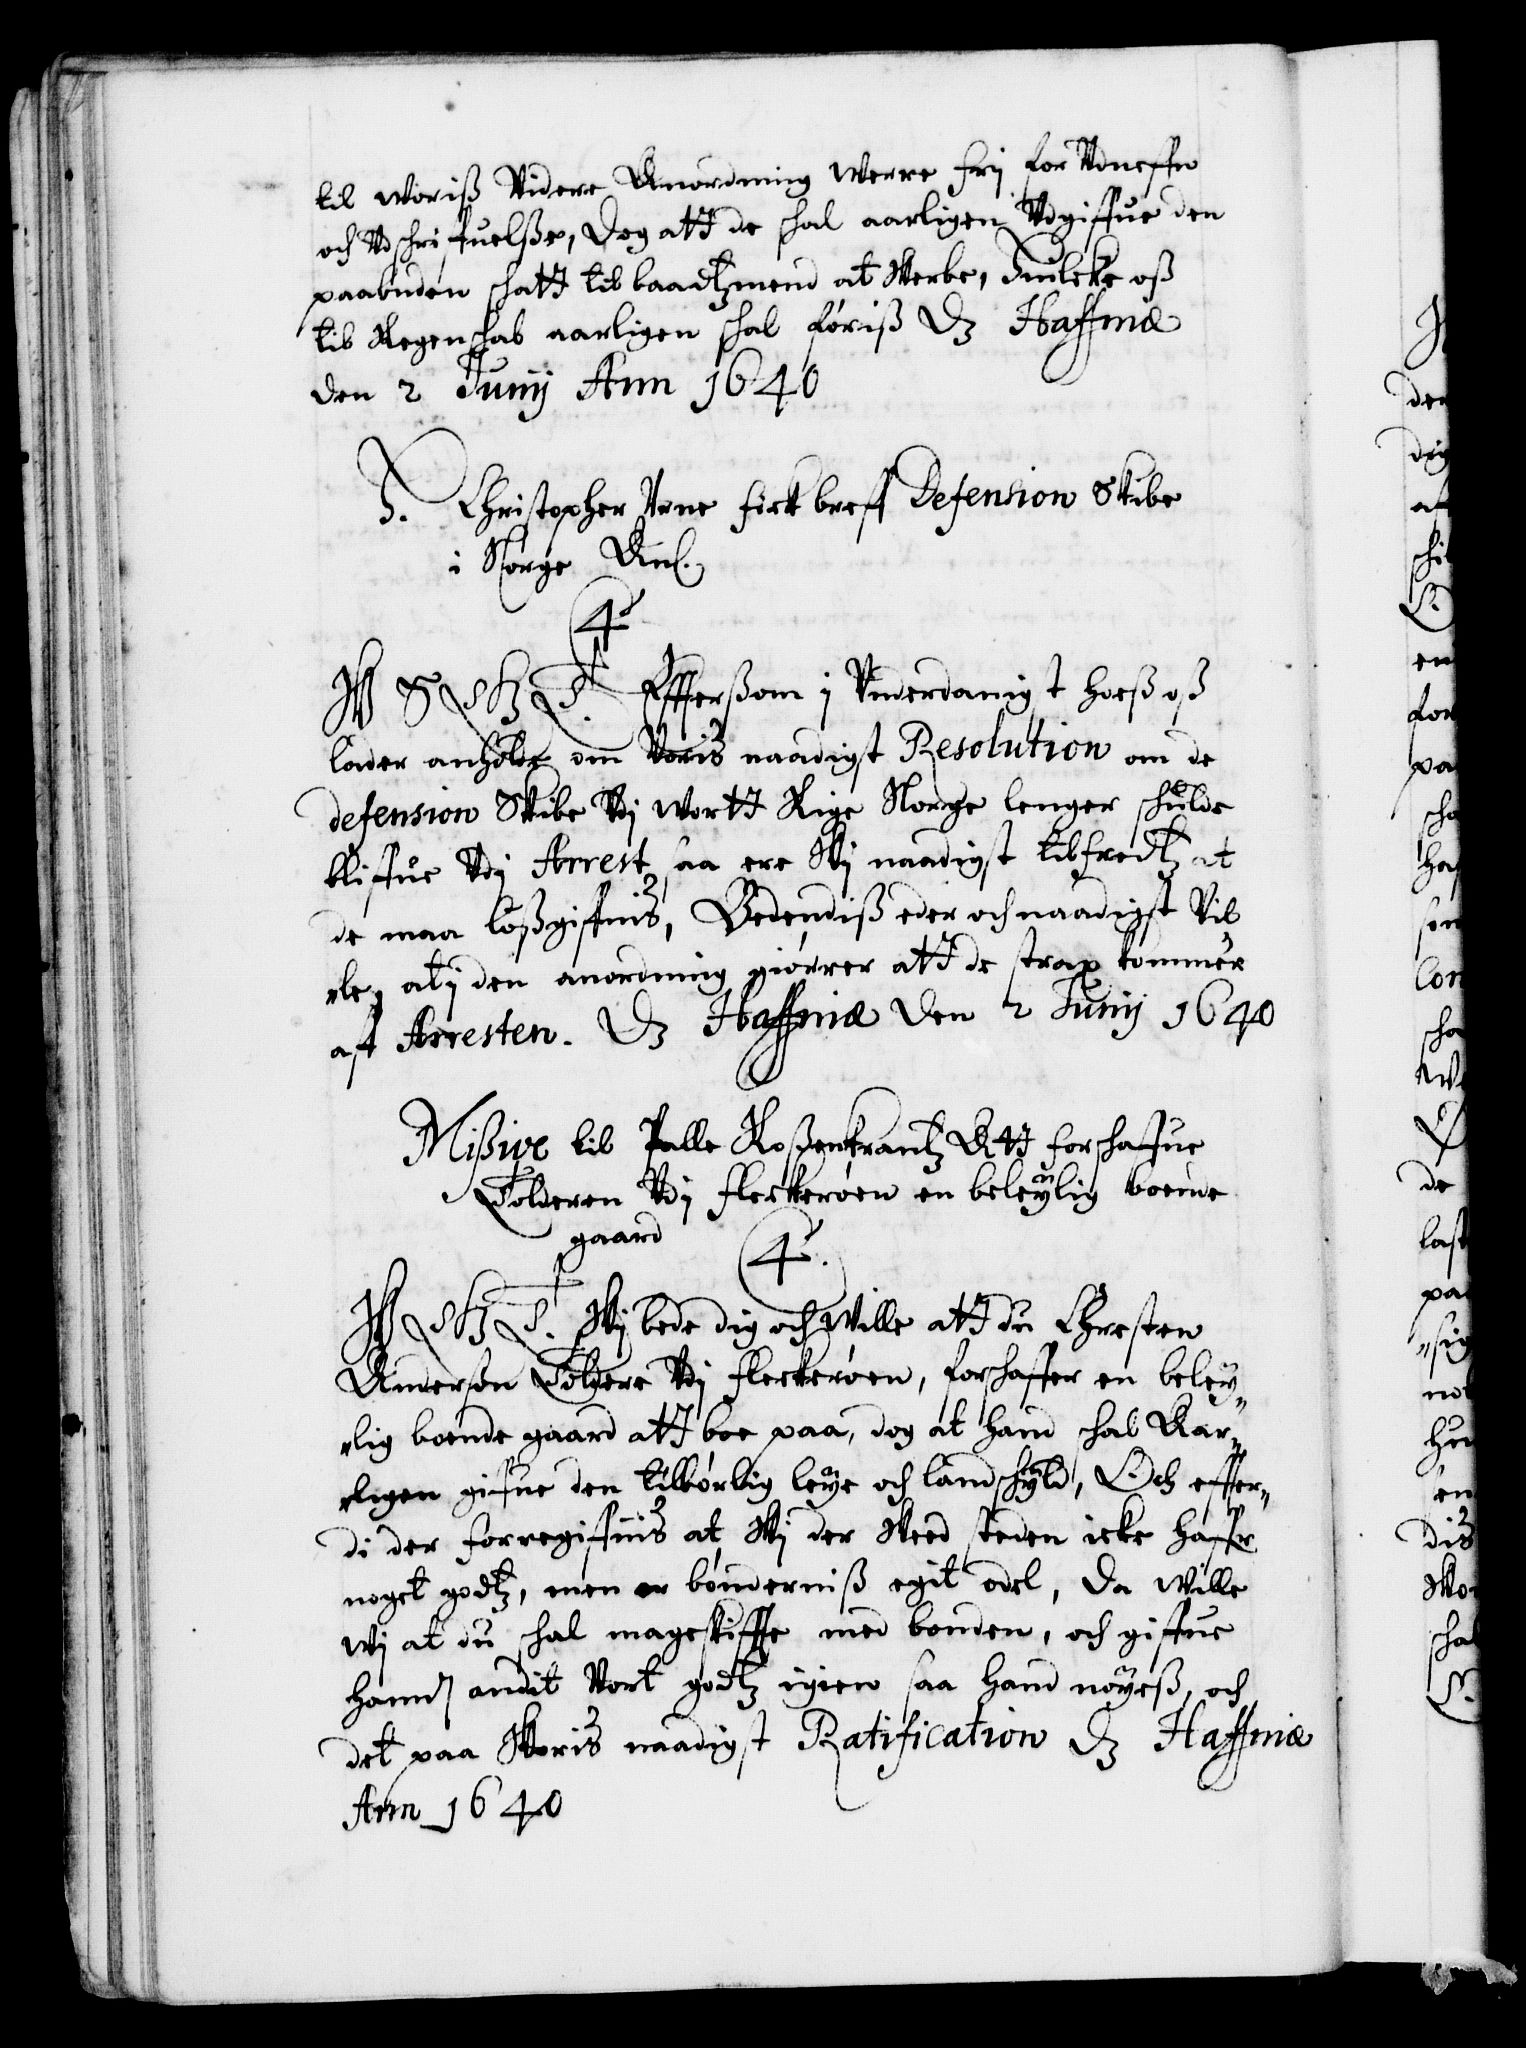 til woriß Videre Anordning werre frj for Vdneffn
och Vdschriffuelße, Dog att de schal aarligen Vdgiffue den
paabuden schatt til baadtzmend at Werbe, huilcke oß
til Regenschab aarligen schal føriß Dz Haffniæ
den 2 Junij Ann 1640
H. Christopher Vrne fick breff Defension Skibe
i Norge Anl.
C4
W S G T Effterßom j Vnderdanigst hoeß oß
lader anholde om Voris naadigst Resolution om de
defension Skibe Vdj wortt Rige Norge lenger schulde
bliffue Vdj Arrest, saa ere Wj naadigst tilfredtz at
de maa løßgiffuis, Bedendiß eder och naadigst Vil
„le, at j den anordning giørrer att de strax kommer
aff Arresten. Dz Haffniæ den 2 Junij 1640
Mißive til Palle Roßenkrantz Att forschaffue
Tolderen Vdj Fleckerøen en beleylig boende
gaard
C4.
W G T. Wj bede dig och Wille att du Chresten
Anderßøn Toldere Vdj Fleckerøen, forschaffer en beley„
„lig boende gaard att boe paa, dog at hand schal Aar„
„ligen giffue den tilbørlig leye och landschyld, Och effter„
di der forregiffuis at Wj der Weed steden icke haffr
noget godtz, men er bønderniß egit odel, Da Wille
wj at du schal mageskiffte med bonden, och giffue
hannd andit Vort godtz igien saa hand nøyeß, och
det paa Woris naadigst Ratification Dz Haffniæ
Ann 1640